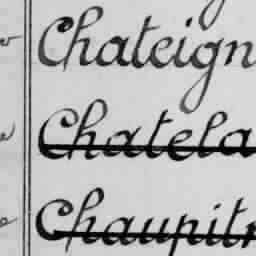 Chateign
Chatela
Chaupit